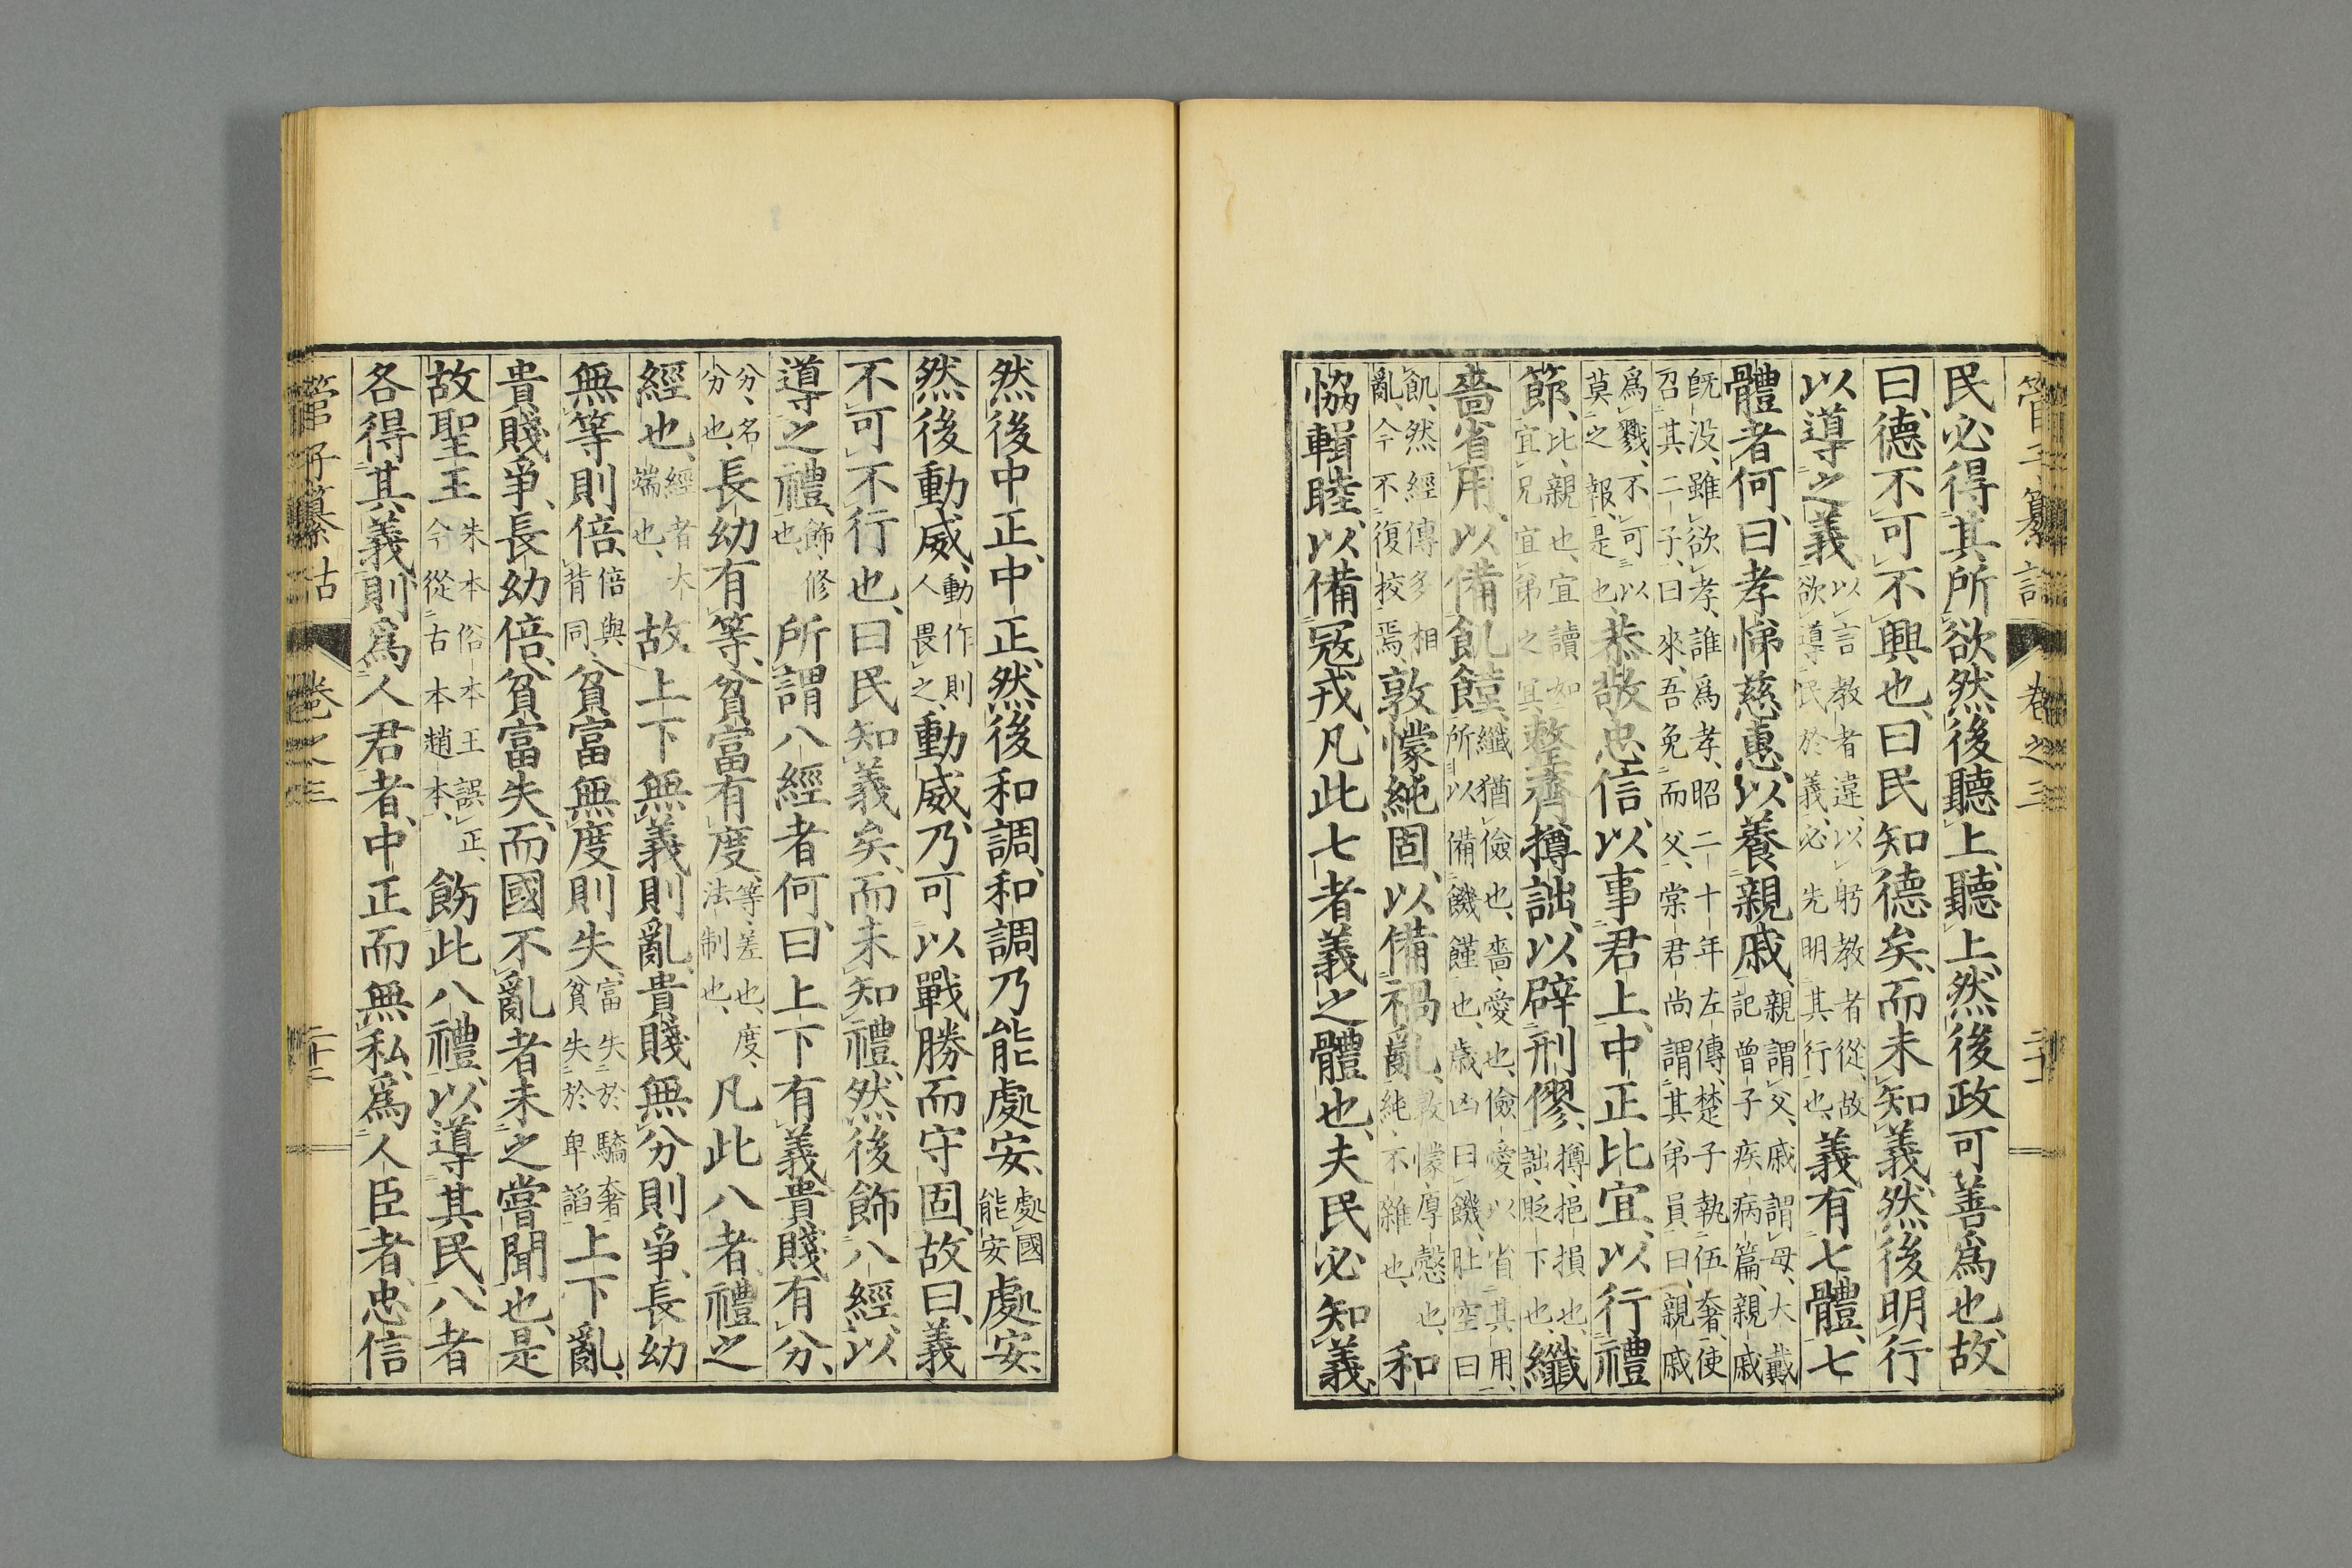 民必得其所欲然後聽上、聽上、然後政可善爲也、故
曰、德不可不興也、曰民知德矣、而未知義、然後明行
以導之義、以言教者違、以躬教者從、故
欲導民於義、必先明其行也、義有七體、七
體者何、曰孝悌慈惠、以養親戚、親謂父、戚謂母、大戴
記曾子疾病篇、親戚
既没、雖欲孝、誰爲孝、昭二十年左傳、楚子執伍奢、使
召其二子、曰來、吾免而父、棠君尚謂其弟員曰、親戚
爲戮、不可以
莫之報、是也、恭敬忠信、以事君上、中正比宜、以行禮
節、比、親也、宜讀如
宜兄宜弟之宜、整齊撙詘、以辟刑僇、撙、挹損也、
詘、貶下也、纖
嗇省用、以備飢饉、纖猶儉也、嗇、愛也、儉愛以省其用、
所以備饑饉也、歳凶曰饑、肚空曰
飢、然經傳多相
亂、今不復校焉、敦懞純固、以備禍亂、敦懞、厚愨也、
純、不雜也、和
恊輯睦、以備冦戎、凡此七者義之體也、夫民必知義、
管子纂詁 卷之三
然後中正、中正、然後和調、和調乃能處安、處國
能安處安、
然後動威、動作則
人畏之、動威、乃可以戰勝而守固、故曰、義
不可不行也、曰民知義矣、而未知禮、然後飾八經、以
導之禮、飾、修
也、所謂八經者何、曰上下有義、貴賤有分、
分、名
分也、長幼有等、貧富有度、等、差也、度、
法制也、凡此八者、禮之
經也、經者大
端也、故上下無義則亂、貴賤無分則爭、長幼
無等則倍、倍與
背同、貧富無度則失、富失於驕奢
貧失於卑謟、上下亂、
貴賤爭、長幼倍、貧富失、而國不亂者、未之嘗聞也、是
故聖王朱本俗本王誤正、
今從古本趙本、飭此八禮、以導其民、八者
各得其義、則爲人君者、中正而無私、爲人臣者、忠信
管子纂詁 卷之三